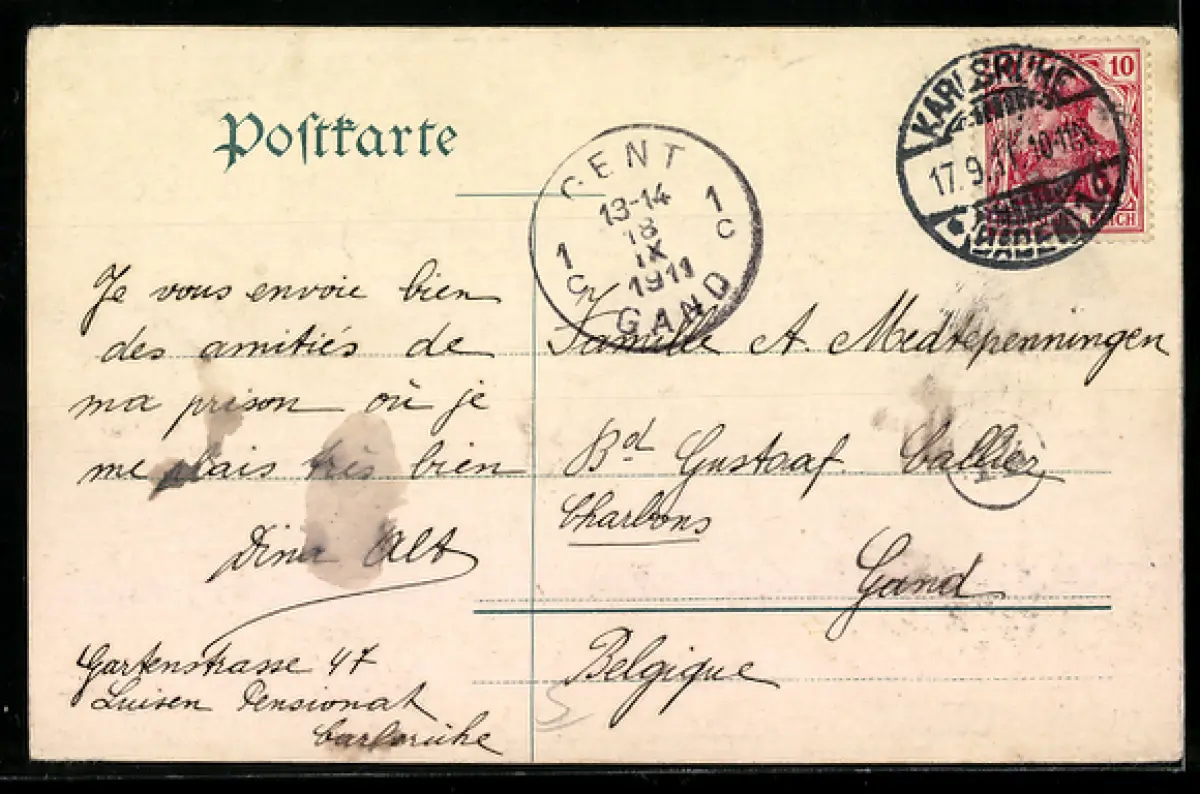 Postkarte
KARLSRUHE
17.9.11. 10-11
BADEN
10
GENT
13-14
18
IX
1911
GAND
1
C
1
C
Je vous envoie bien
des amitiés de
ma prison où je
me plais très bien
Dina Alt
Gartenstrasse 47
Luisen Pensionat
Carlsruhe
Famille A. Medtepenningen
Bd Gustaaf. Callier
Charbons
Gand
Belgique